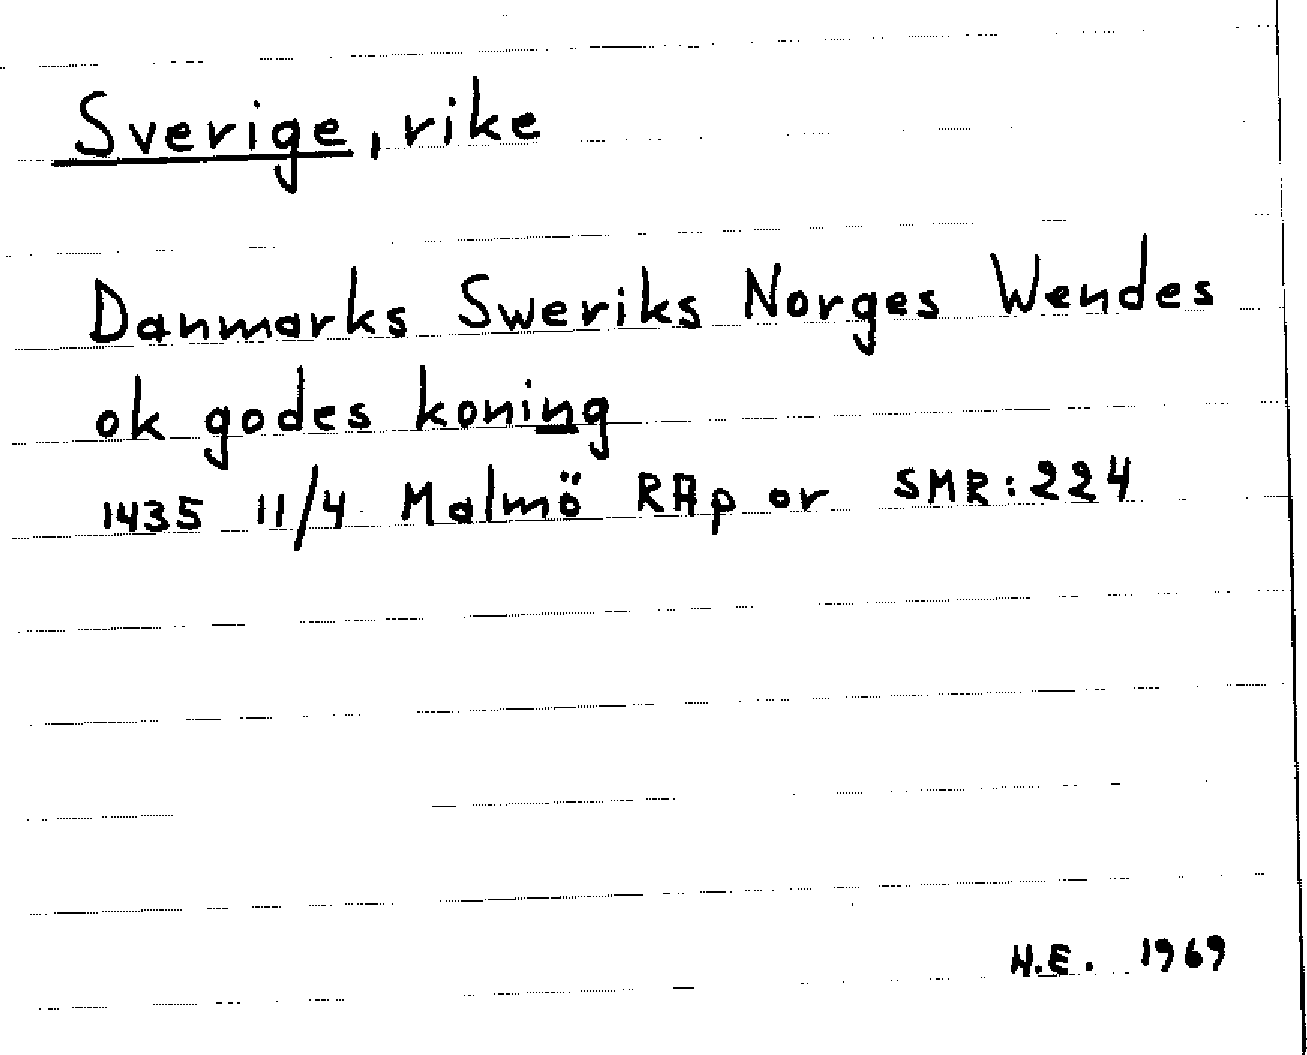 Sverige, rike
Danmarks Sweriks Norges Wendes
ok godes koning
1435 11/4 Malmö RAp or SMR:224
H.E. 1969